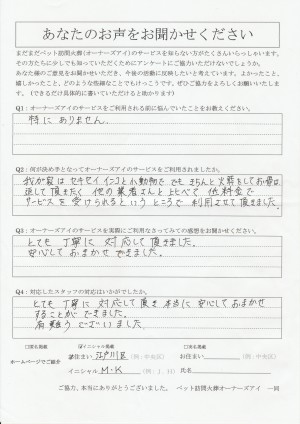 あなたのお声をお聞かせください
まだまだペット訪問火葬(オーナーズアイ)のサービスを知らない方がたくさんいらっしゃいます。
その方たちに少しでも知っていただくためにアンケートにご協力いただけないでしょうか。
あなた様のご意見をお聞かせいただき、今後の活動に反映したいと考えています。よかったこと、
嬉しかったこと、どのような些細なことでもけっこうです。ぜひご協力をよろしくお願いいたします。
(できるだけ具体的に書いていただけると助かります)
Q1:オーナーズアイのサービスをご利用される前に悩んでいたことをお教えください。
特にありません。
Q2:何が決め手となってオーナーズアイのサービスをご利用されましたか。
我が家はセキセイインコと小動物で でもきちんと火葬をしてお骨は
返して頂きたく 他の業者さんとくらべて 低料金で
サービスを受けられるという ところで 利用させて頂きました。
Q3:オーナーズアイのサービスを実際にご利用なさってみての感想をお聞かせください。
とても 丁寧に 対応して 頂きました。
安心しておまかせできました。
Q4:対応したスタッフの対応はいかがでしたか。
とても 丁寧に 対応して 頂き 本当に 安心して おまかせ
することが できました。
有難うございました。
□実名掲載 ☑イニシャル掲載 □匿名掲載
ホームページでご紹介
お住まい 江戸川区 (例:中央区) お住まい (例:中央区)
イニシャル M・K (例:J．H) 氏名
ご協力、本当にありがとうございました。 ペット訪問火葬オーナーズアイ 一同